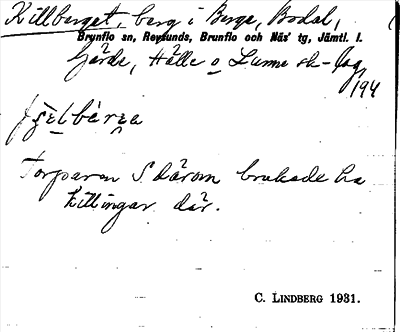 Killberget, berg i Berge, Bodal,
Brunflo sn, Revsunds, Brunflo och Näs' tg, Jämtl. l.
Gärde, Hälle o Lunne sk-lag
194
Torparen S därom brukade ha
killingar där.
C. LINDBERG 1931.